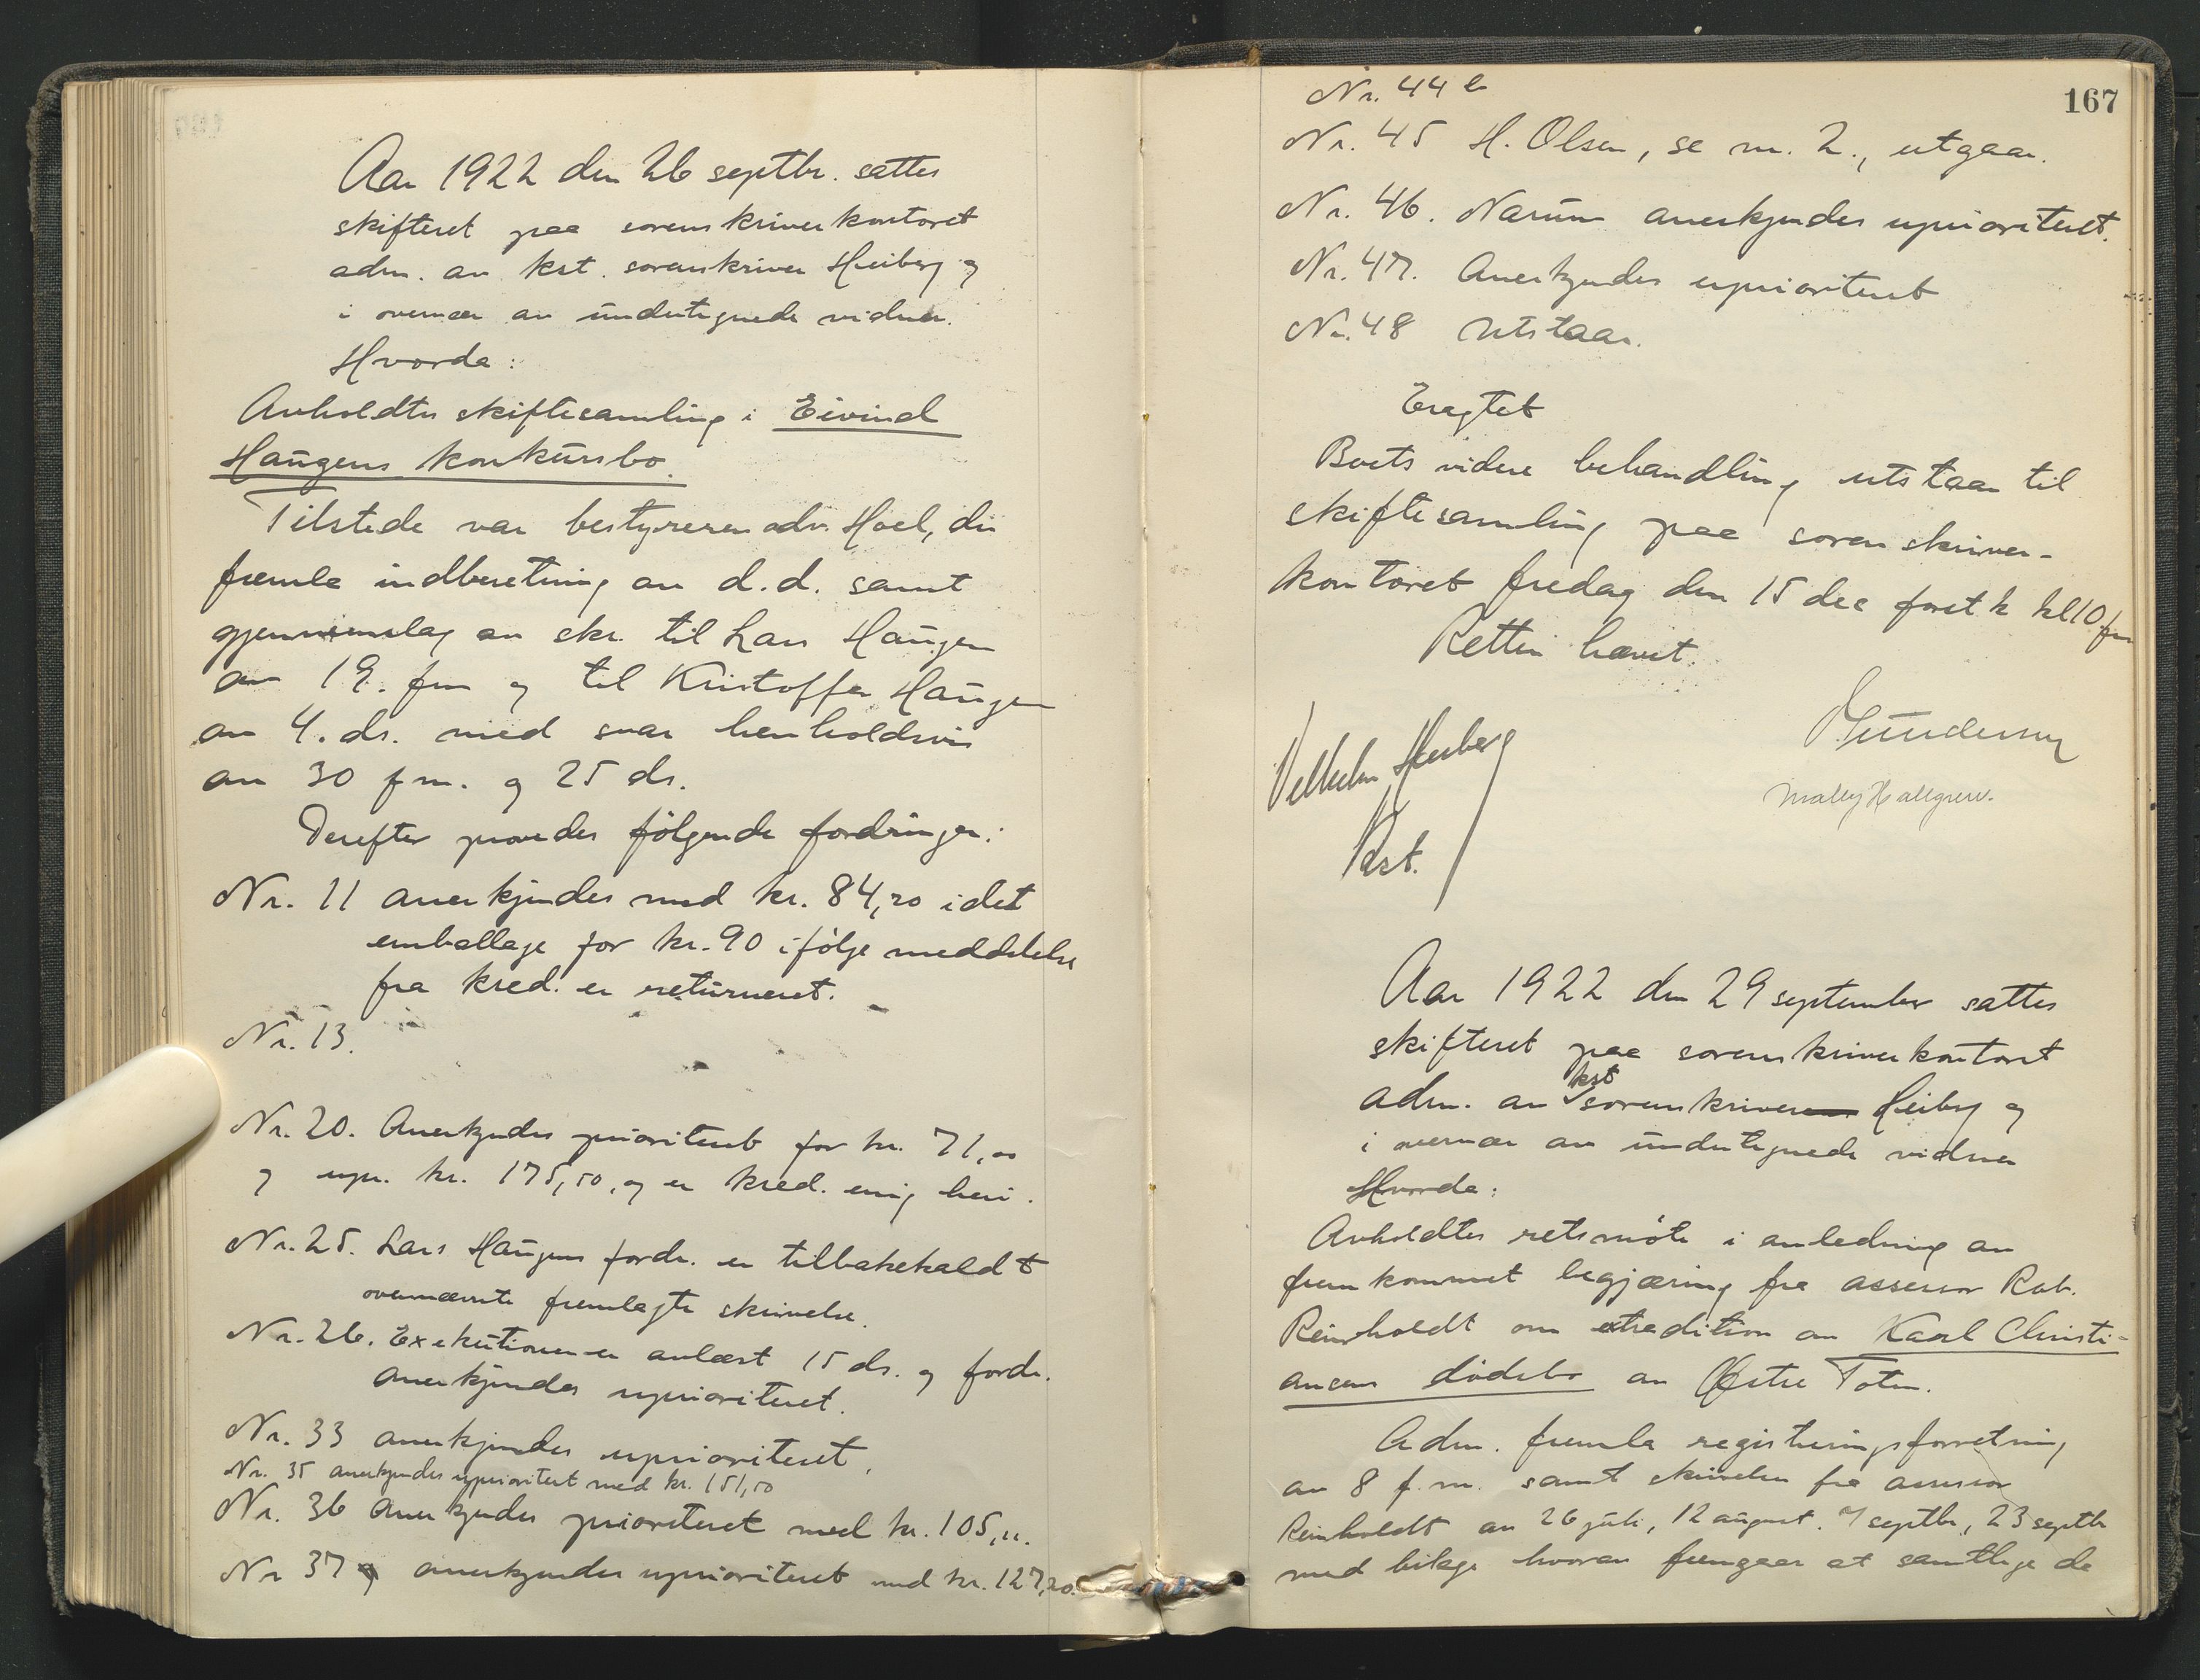 Aar 1922 den 26 septbr. sattes
skifteret paa sorenskriverkontoret
adm. av kst. sorenskriver Heiberg og
i overvær av undertegnede vidner.
Hvorda:
Avholdtes skiftesamling i Eivind
Haugens konkursbo.
Tilstede var bestyreren adv. Hoel, der
fremla indberetning av d.d. samt
gjennemslag av skr. til Lars Haugen
av 19. fm og til Kristoffer Haugen
av 4. ds. med svar henholdsvis
av 30 f.m. og 25 ds.
Derefter prøvedes følgende fordringer:
Nr. 11 anerkjendes med kr. 84,20 idet
emballage for kr. 90 ifølge meddelelse
fra kred. er returneret.
Nr. 13.
Nr. 20. Anerkjendes prioritert for kr. 71,00
og upr. kr. 175,50, og er kred. enig heri.
Nr. 25. Lars Haugens fordr. er tilbakekaldt
ovennævnte fremlagte skrivelse.
Nr. 26. Exekutionen er avlæst 15 ds. og fordr.
anerkjendes uprioriteret.
Nr. 33 anerkjendes uprioriteret.
Nr. 35 anerkjendes uprioritert med kr. 151,50
Nr. 36 Anerkjendes prioriteret med kr. 105,
Nr 37 anerkjendes uprioriteret med kr. 127,20.
167
Nr. 44 b
Nr. 45 H. Olsen, se nr. 2., utgaar.
Nr. 46. Narum anerkjendes uprioriteret.
Nr. 47. Anerkjendes uprioritert
Nr. 48 Utstaar.
Eragtet
Boets videre behandling utstaar til
skiftesamling paa sorenskriver-
kontoret fredag den 15 dec førstk kl 10 fm
Retten hævet.
Vilhelm Heiberg
Kst.
Gundersen
Mally Hallgren.
Aar 1922 den 29 september sattes
skifteret paa sorenskriverkontoret
adm. av kst sorenskriveren Heiberg og
i overvær av undertegnede vidner
Hvorda:
Avholdtes retsmöte i anledning av
fremkommet begjæring fra assessor Rob.
Reinholdt om extradition av Karl Christi-
ansens dödsbo av Østre Toten.
Adm. fremla registreringsforretning
av 8 f.m. samt skrivelser fra assessor
Reinholdt av 26 juli, 12 august, 7 septbr, 23 septb
med bilage hvorav fremgaar at samtlige de